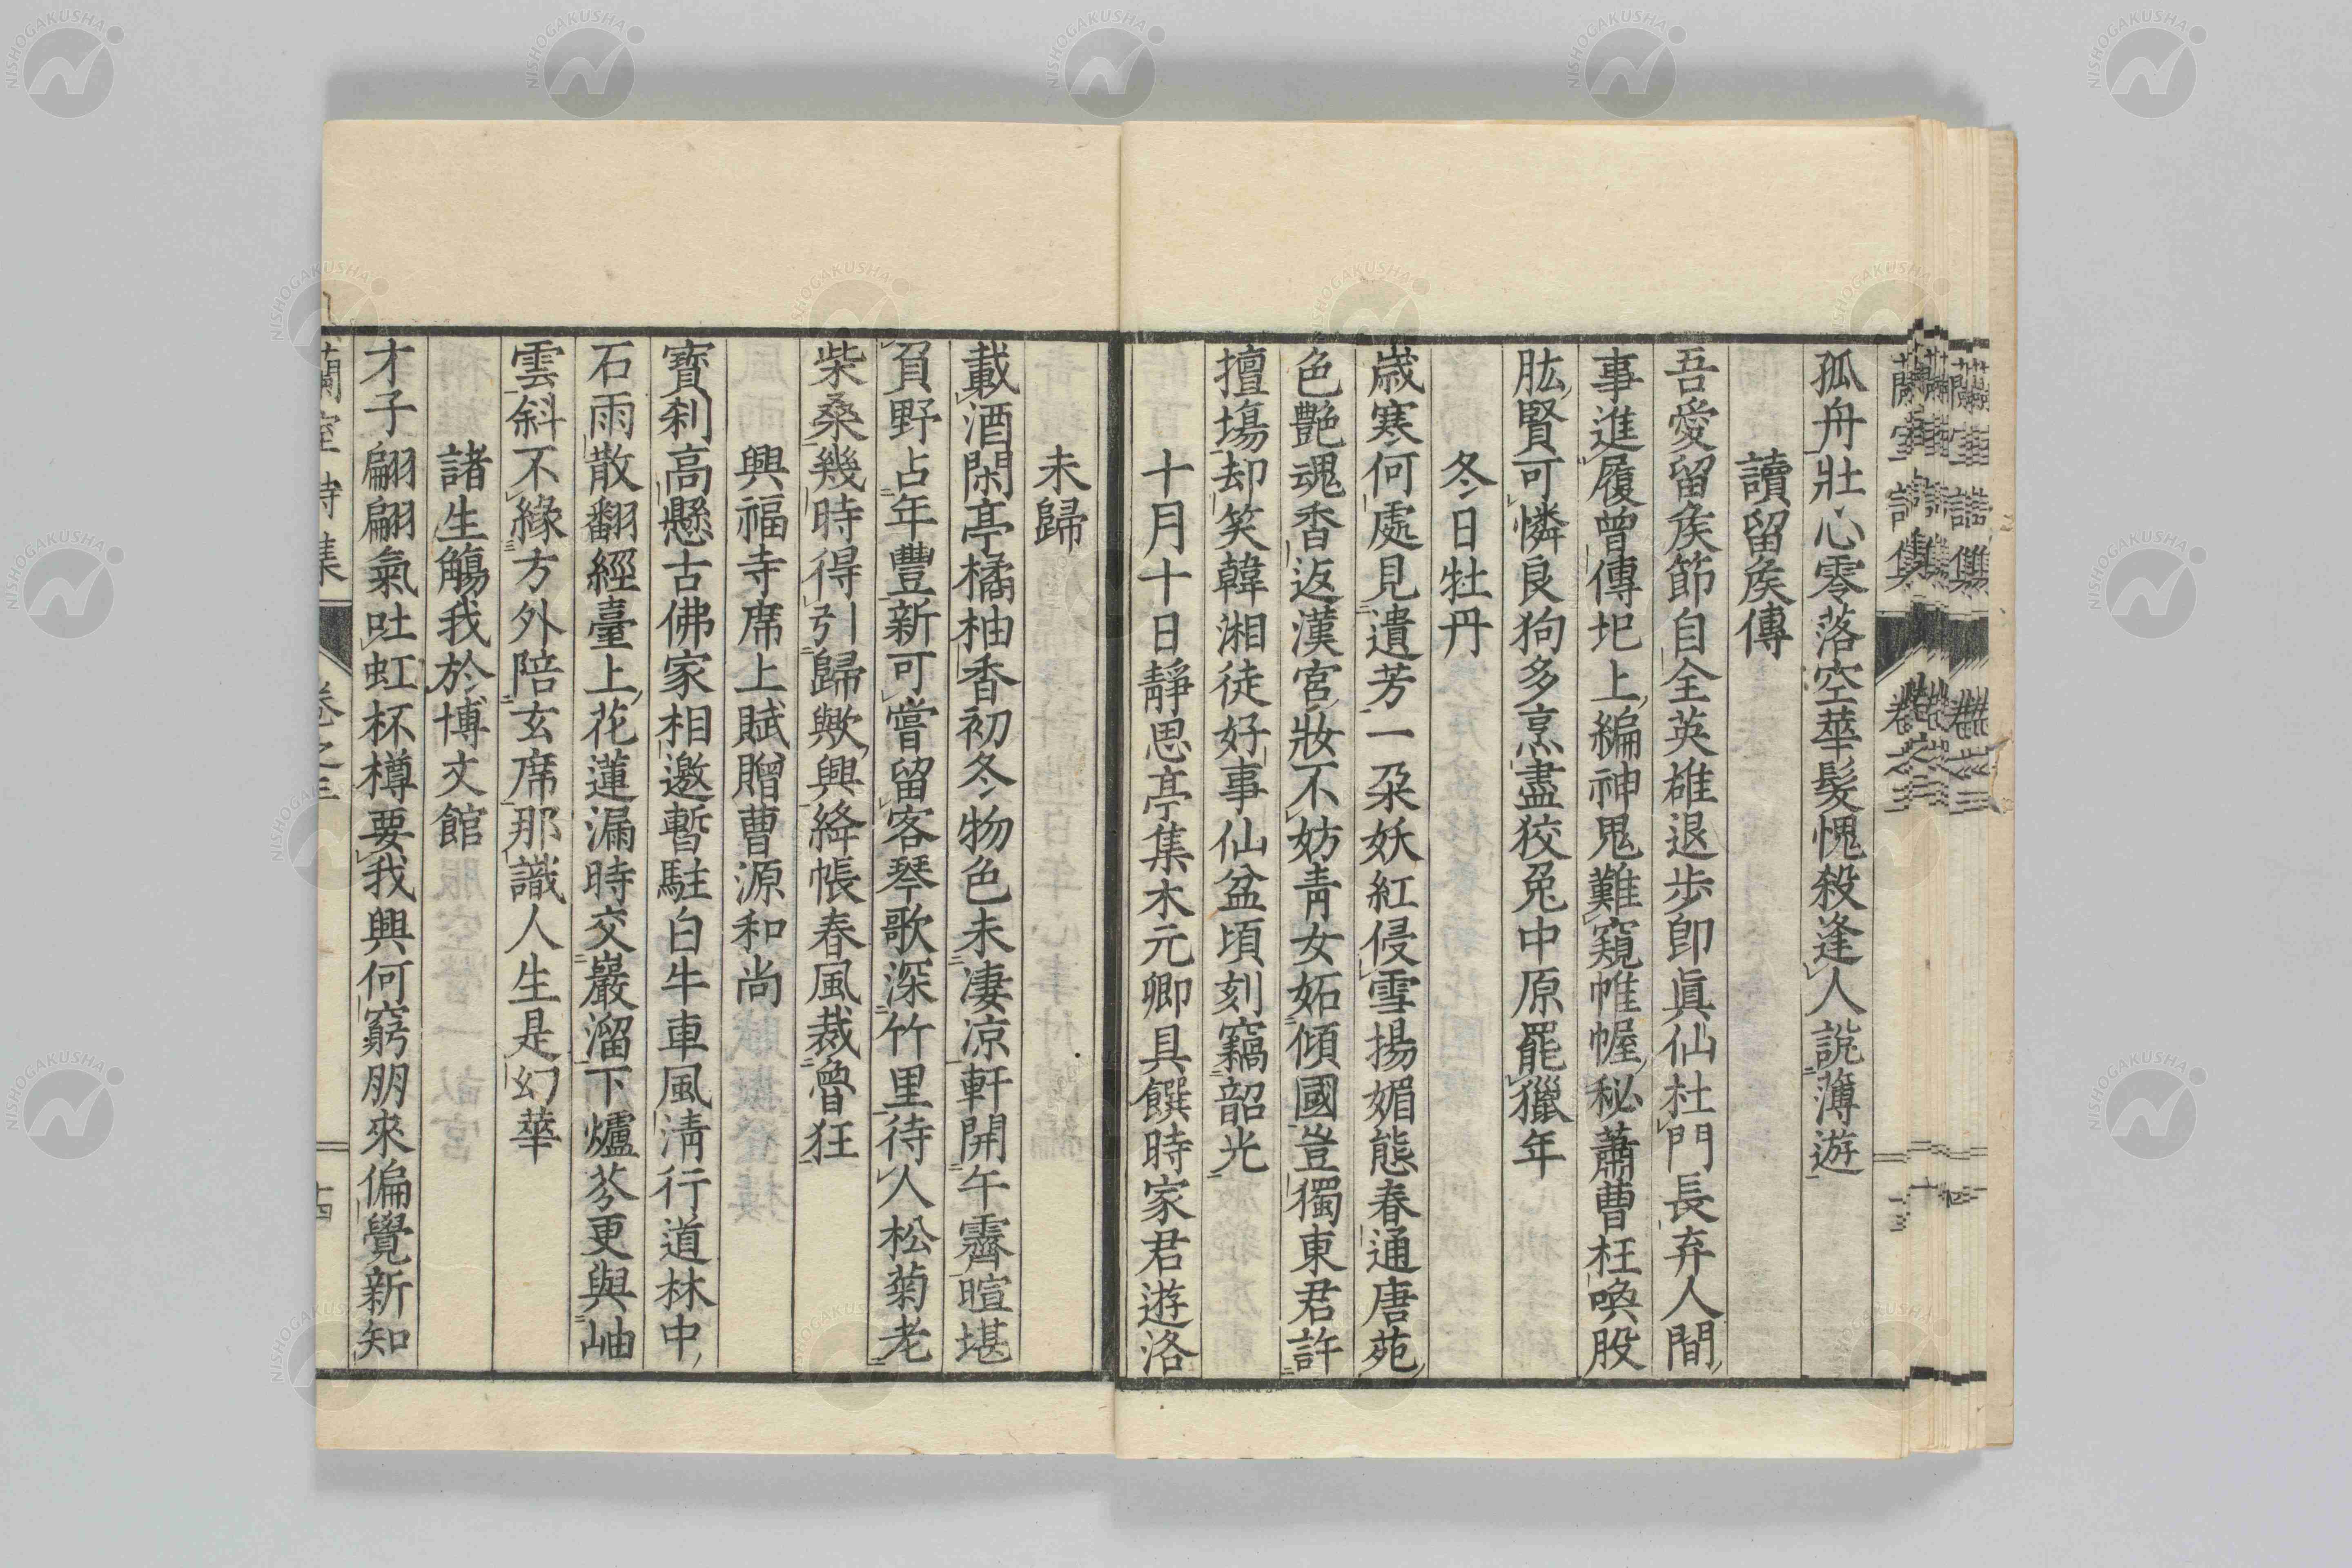 孤舟壯心零落空華髮愧殺逢人說薄遊
讀留矦傳
吾愛留矦節自全英雄退步卽眞仙杜門長弃人間
事進履曾傳圯上編神鬼難窺帷幄秘蕭曹枉喚股
肱賢可憐良狗多烹盡狡兔中原罷獵年
冬日牡丹
歲寒何處見遺芳一朶妖紅侵雪揚媚態春通唐苑
色艷魂香返漢宮妝不妨靑女妬傾國豈獨東君許
擅塲却笑韓湘徒好事仙盆頃刻竊韶光
十月十日靜思亭集木元卿具饌時家君遊洛
未歸
載酒閑亭橘柚香初冬物色未凄凉軒開午霽暄堪
負野占年豐新可嘗留客琴歌深竹里待人松菊老
柴桑幾時得引歸歟興絳帳春風裁曾狂
興福寺席上賦贈曹源和尚
寶刹高懸古佛家相邀暫駐白牛車風淸行道林中
石雨散翻經臺上花蓮漏時交巖溜下爐芬更與岫
雲斜不緣方外陪玄席那識人生是幻華
諸生觴我於博文館
才子翩翩氣吐虹杯樽要我興何窮朋來偏覺新知
蘭室詩集
卷之三
十四
NISHOGAKUSHA